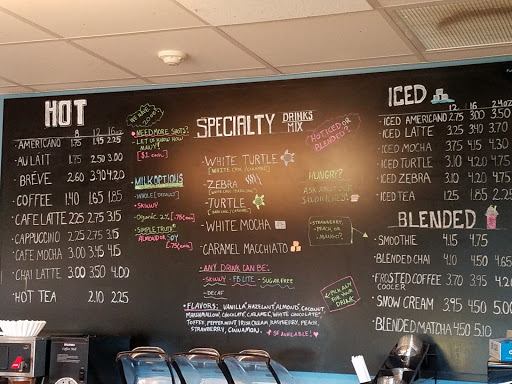 HOT
8 12 16oz
• AMERICANO 1.75 1.95 2.25
• AU LAIT 1.75 2.50 3.00
• BRÉVE 2.60 3.90 4.20
• COFFEE 1.40 1.65 1.85
• CAFE LATTE 2.25 2.75 3.15
• CAPPUCCINO 2.25 2.75 3.15
• CAFE MOCHA 3.00 3.45 4.15
• CHAI LATTE 3.00 3.50 4.00
• HOT TEA 2.10 2.25
NEED MORE SHOTS?
LET US KNOW HOW
MANY!
MILK OPTIONS
• WHOLE [DEFAULT]
• SKINNY
• Organic 2% [.75¢]
• SIMPLE TRUTH
ALMOND OR SOY
SPECIALTY DRINKS
MIX
• WHITE TURTLE
[WHITE CHOC./CARAMEL]
• ZEBRA
• TURTLE
• WHITE MOCHA
• CARAMEL MACCHIATO
• ANY DRINK CAN BE:
• SKINNY • FB LITE • SUGAR FREE
• DECAF
• FLAVORS: VANILLA, HAZELNUT, ALMOND, COCONUT,
MARSHMALLOW, CHOCOLATE, CARAMEL, WHITE CHOCOLATE
TOFFEE, PEPPERMINT, IRISH CREAM, RASPBERRY, PEACH,
STRAWBERRY, CINNAMON.
SF AVAILABLE!
HOT, ICED OR
BLENDED?
HUNGRY?
ASK ABOUT OUR
STRAWBERRY,
PEACH, OR
MANGO?
FOR YOUR
DRINK!
ICED
12 16 24oz
• ICED AMERICANO 2.75 3.00 3.50
• ICED LATTE 3.25 3.40 3.70
• ICED MOCHA 3.75 4.15 4.30
• ICED TURTLE 3.10 4.20 4.75
• ICED ZEBRA 3.10 4.20 4.75
• ICED TEA 1.25 1.85 2.25
BLENDED
• SMOOTHIE 4.15 4.75
• BLENDED CHAI 4.10 4.50
• FROSTED COFFEE 3.70 3.95
COOLER
• SNOW CREAM 3.95 4.50 5.00
• BLENDED MATCHA 4.50 5.10